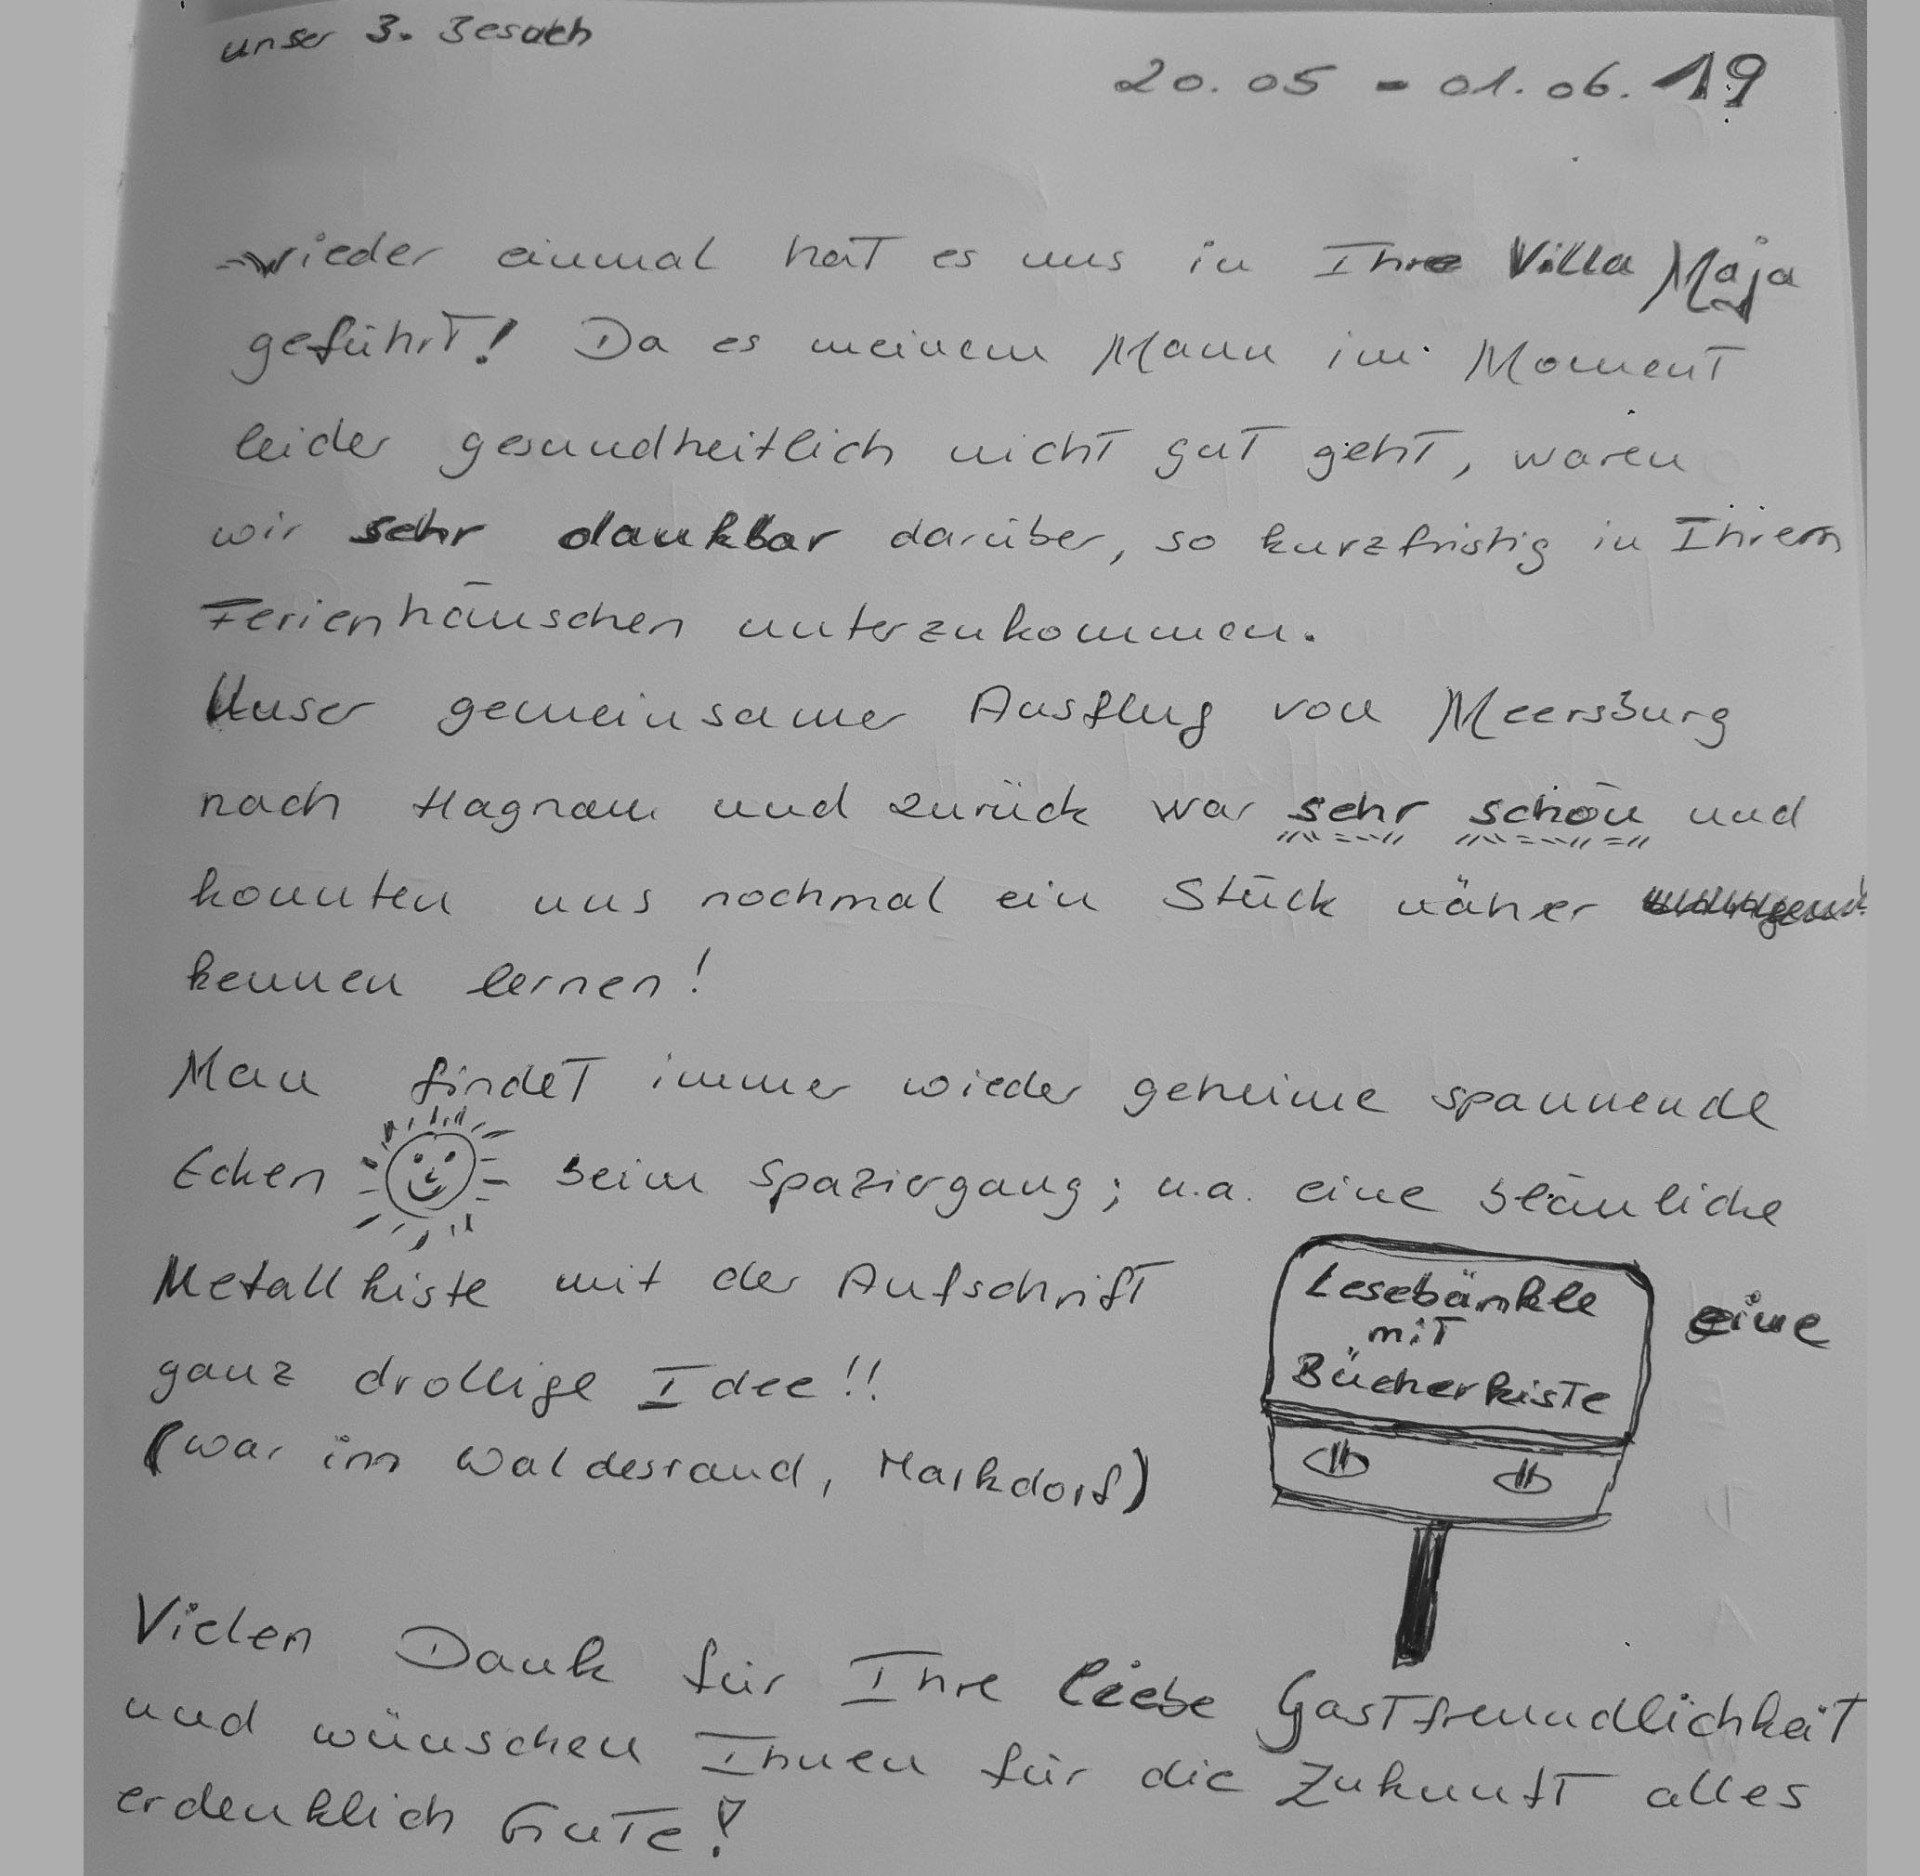 unser 3. Besuch
20.05 - 01.06.19
wieder einmal hat es uns in Ihre Villa Maja
geführt! Da es meinem Mann im Moment
leider gesundheitlich nicht gut geht, waren
wir sehr dankbar darüber, so kurzfristig in Ihrem
Ferienhäuschen unterzukommen.
Unser gemeinsamer Ausflug von Meersburg
nach Hagnau und zurück war sehr schön und
konnten uns nochmal ein Stück näher
kennen lernen!
Man findet immer wieder geheime spannende
Ecken beim Spaziergang; u.a. eine bläuliche
Metallkiste mit der Aufschrift
Lesebänkle
mit
Bücherkiste
eine
ganz drollige Idee!!
(war im Waldesrand, Markdorf)
Vielen Dank für Ihre liebe Gastfreundlichkeit
und wünschen Ihnen für die Zukunft alles
erdenklich Gute!